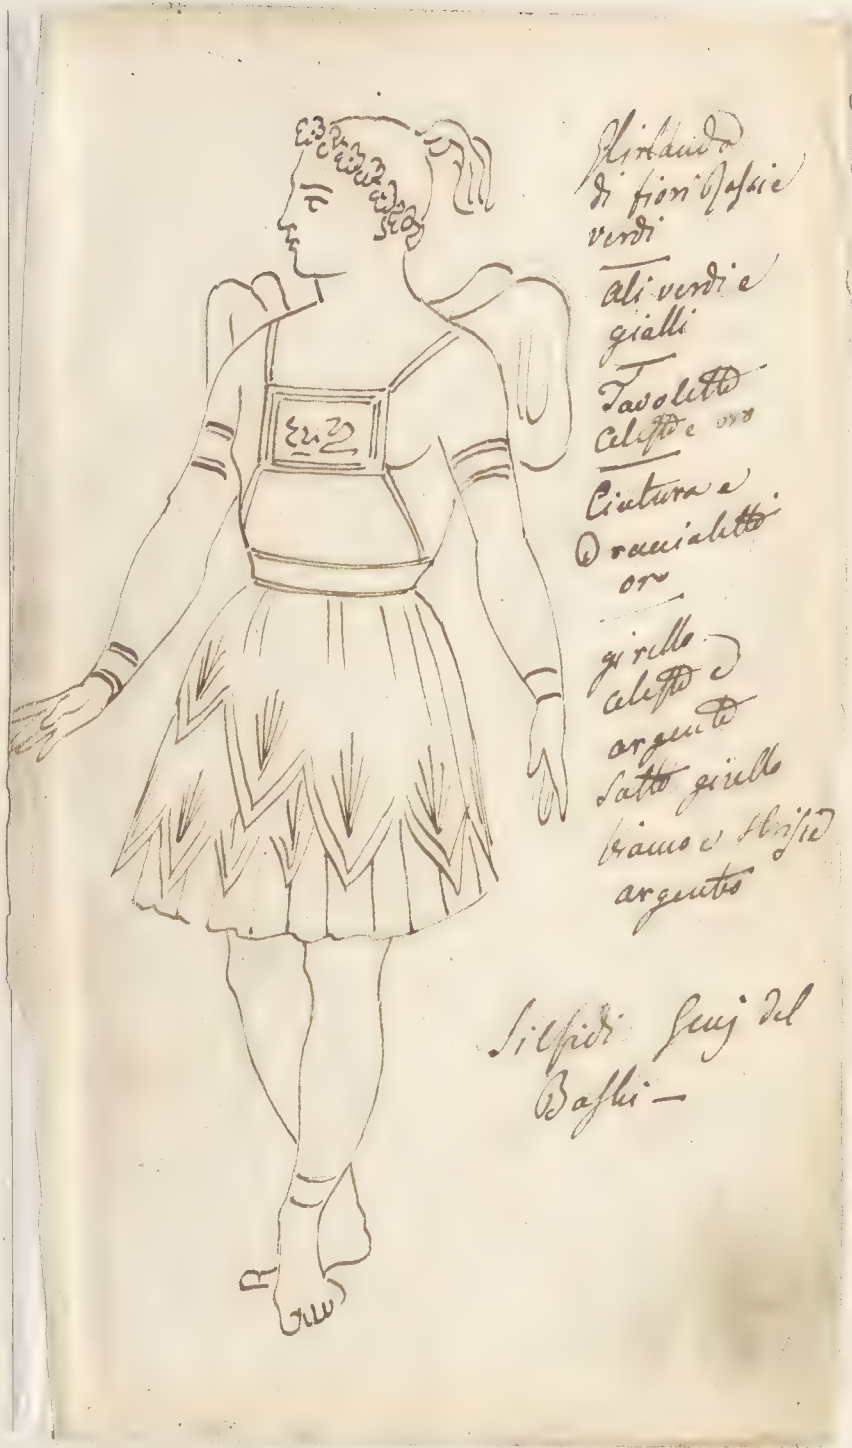 Ghirlanda
di fiori Rossi e
verdi
ali verdi e
gialli
Tavolette
Celeste e oro
Cintura e
Braccialetti
oro
girello
celeste e
argento
Sotto girello
bianco e strisie
argento
Silfidi Genj del
Boschi
R